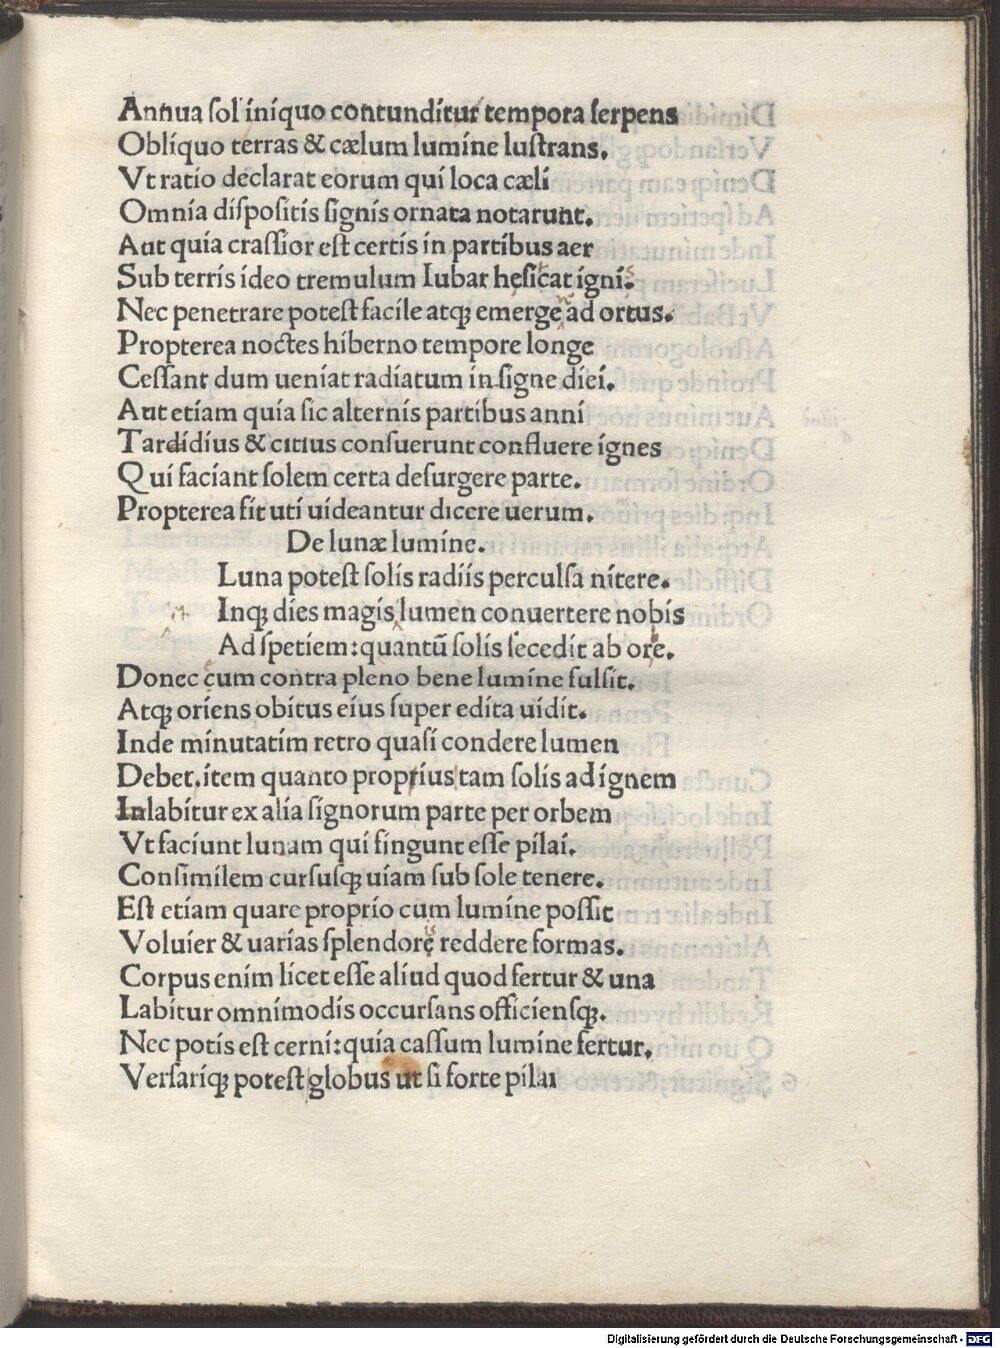 Annua ſol iniquo contunditur tempora ſerpens
Obliquo terras & cælum lumine luſtrans.
Vt ratio declarat eorum qui loca cæli
Omnia diſpoſitis ſignis ornata notarunt.
Aut quia craſſior eſt certis in partibus aer
Sub terris ideo tremulum Iubar heſicat igni.
Nec penetrare poteſt facile atqꝫ emerge ad ortus.
Propterea noctes hiberno tempore longe
Ceſſant dum ueniat radiatum inſigne diei.
Aut etiam quia ſic alternis partibus anni
Tardidius & citius conſuerunt confluere ignes
Qui faciant ſolem certa deſurgere parte.
Propterea fit uti uideantur dicere uerum.
De lunæ lumine.
Luna poteſt ſolis radiis perculſa nitere.
Inqꝫ dies magis lumen conuertere nobis
Ad ſpetiem: quantū ſolis ſecedit ab ore.
Donec cum contra pleno bene lumine fulſit.
Atqꝫ oriens obitus eius ſuper edita uidit.
Inde minutatim retro quaſi condere lumen
Debet. item quanto proprius tam ſolis ad ignem
Inlabitur ex alia ſignorum parte per orbem
Vt faciunt lunam qui fingunt eſſe pilai.
Conſimilem curſuſqꝫ uiam ſub ſole tenere.
Eſt etiam quare proprio cum lumine poſſit
Voluier & uarias ſplendorę reddere formas.
Corpus enim licet eſſe aliud quod fertur & una
Labitur omnimodis occurſans officienſqꝫ.
Nec potis eſt cerni: quia caſſum lumine fertur.
Verſariqꝫ poteſt globus ut ſi forte pilai
Digitalisierung gefördert durch die Deutsche Forschungsgemeinschaft - DFG